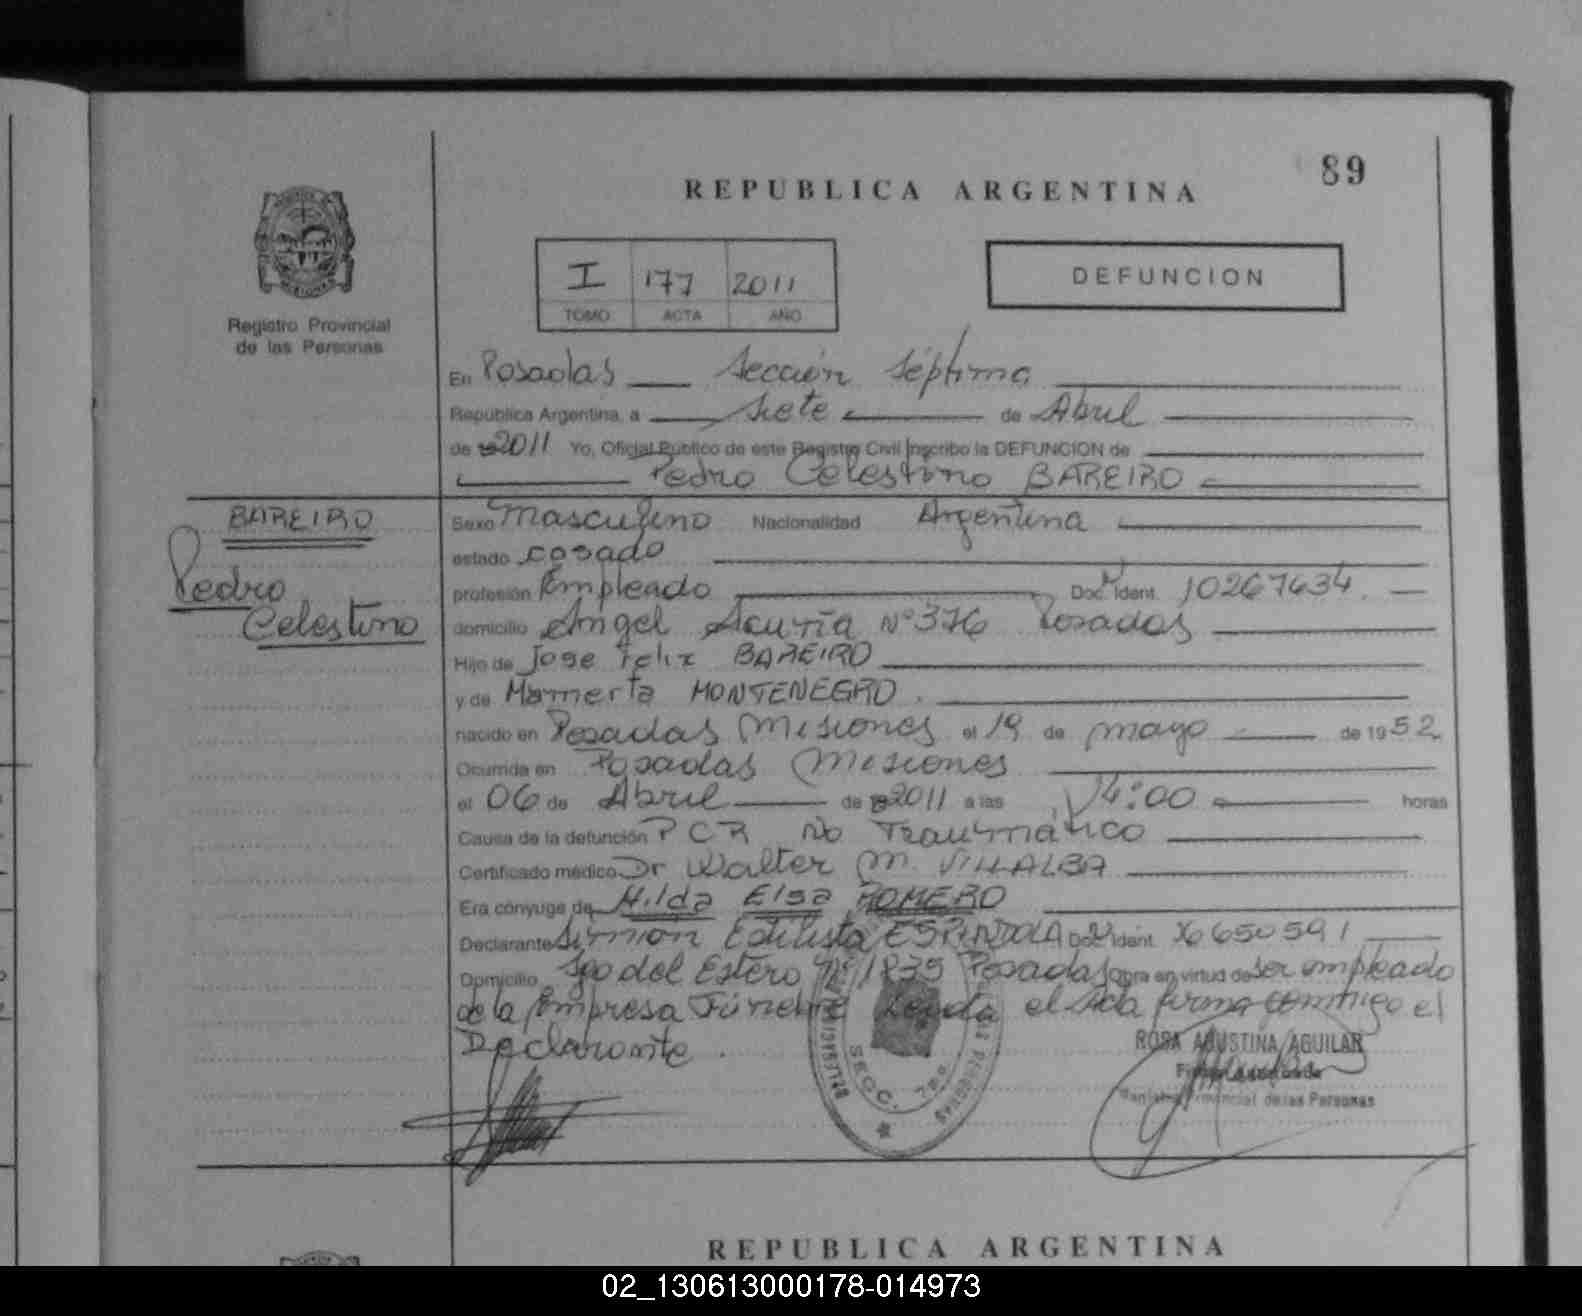 89
REPUBLICA ARGENTINA
I 177 2011
TOMO ACTA AÑO
DEFUNCION
Registro Provincial
de las Personas
En Posadas Sección Séptima
República Argentina, a siete de Abril
de 2011 Yo, Oficial Público de este Registro Civil Inscribo la DEFUNCION de
Pedro Celestino BAREIRO
BAREIRO
Pedro
Celestino
Sexo Masculino Nacionalidad Argentina
estado casado
profesión Empleado Doc. Ident. 10267634
domicilio Angel Acuña Nº 376 Posadas
Hijo de Jose Felix BAREIRO
y de Mamerta MONTENEGRO.
nacido en Posadas Misiones el 19 de mayo de 1952
Ocurrida en Posadas Misiones
el 06 de Abril de 2011 a las 14:00 horas
Causa de la defunción P C R No Traumático
Certificado médico Dr Walter M. VILLALBA
Era cónyuge de Hilda Elsa ROMERO
Declarante ESPINDOLA Doc. Ident.
Domicilio Sgo del Estero Nº 1835 Posadas obra en virtud de ser empleado
de la Empresa Fúnebre Leída el Acta firma conmigo el
Declarante.
ROSA AGUSTINA AGUILAR
Registro Provincial de las Personas
SECC. 7ma.
REPUBLICA ARGENTINA
02_130613000178-014973